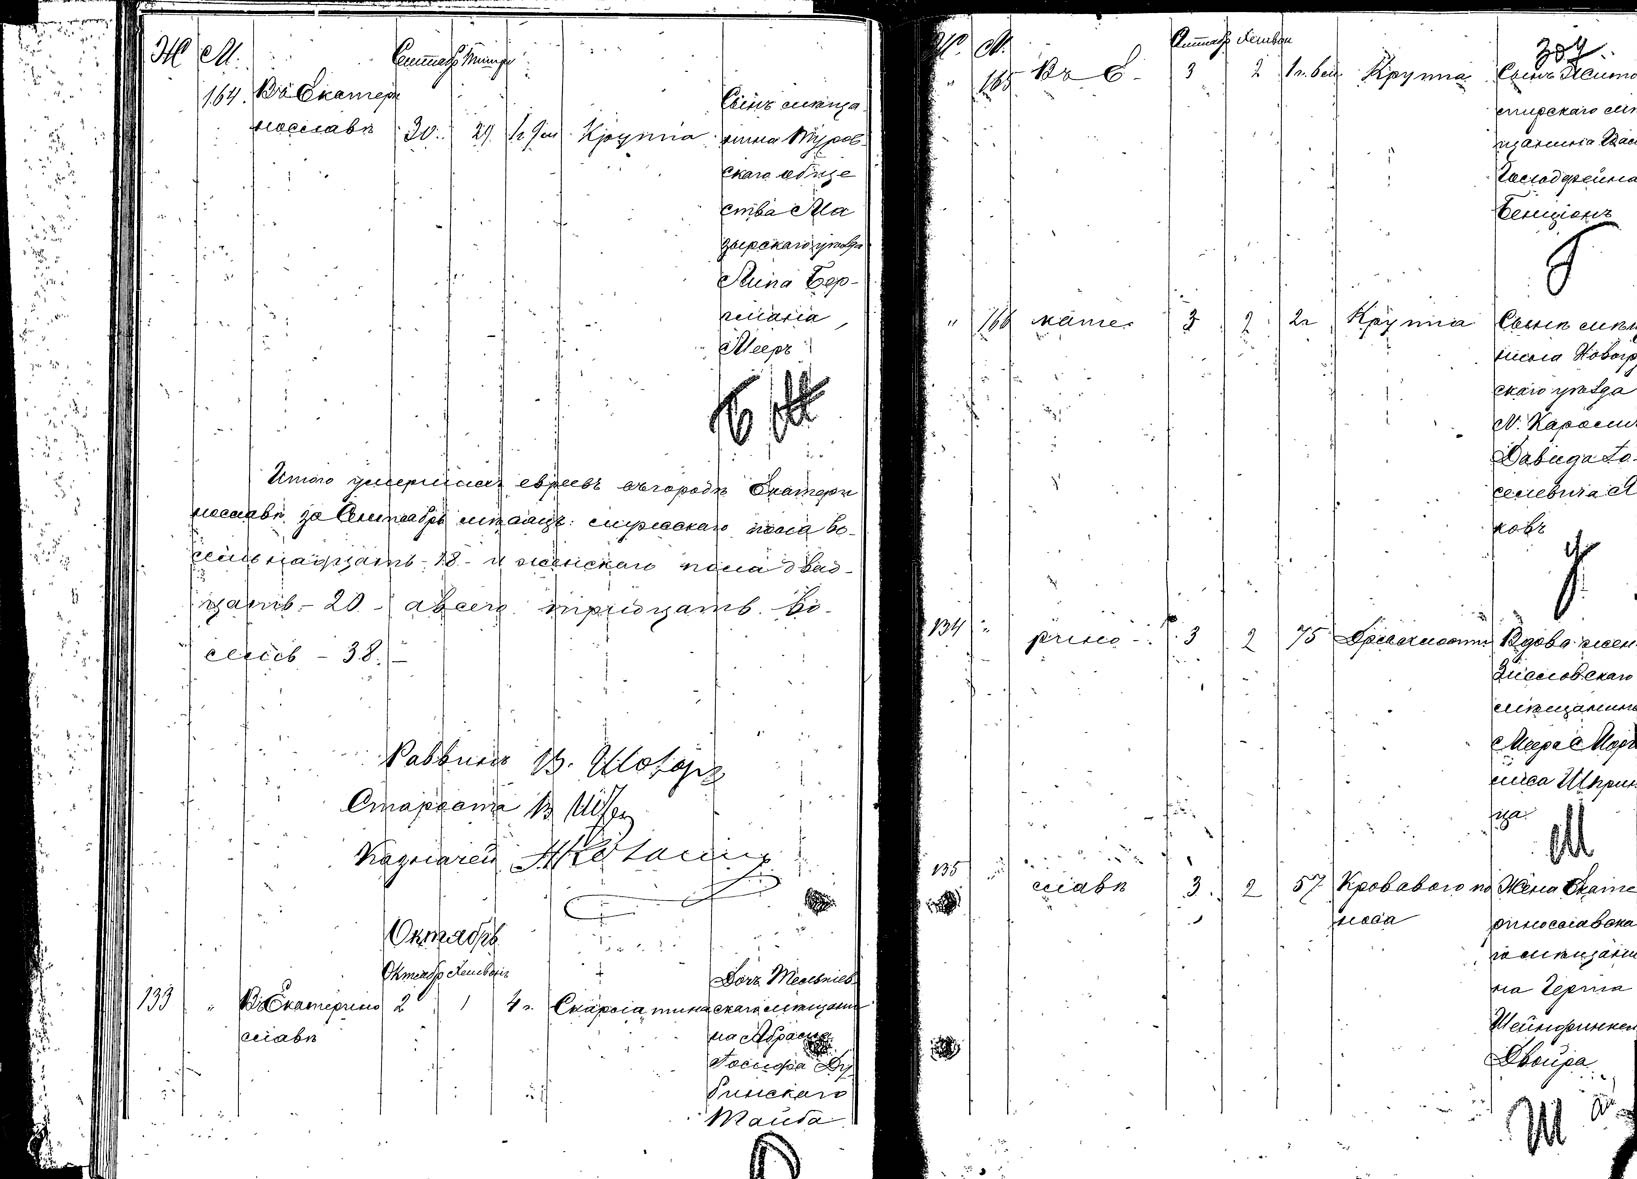 Ж М. Сентябр Тишри
164. Въ Екатери
нославѣ 30. 29 1 г. 9 м Крупа
Сынъ мѣща
нина Туров
скаго обще
ства Мо
зырскаго уѣзда
Липа Бер-
мана,
Мееръ
Б М
Итого умершихъ евреевъ въ городѣ Екатери
нославѣ за Сентябрь мѣсяцъ: мужскаго пола во-
семьнадцать - 18 - и женскаго пола двад-
цать - 20 - а всего тридцать во-
семь - 38. -
Раввинъ В. Шохоръ
Староста В
Казначей
Октябрь
Октябр Хешванъ
133 " Въ Екатерино
славѣ 2 1 4 г. Скарлатина
Дочь Тельшев
скаго мѣщани
на Абрама
Іосифа Ду
бинскаго
Тайба
Ж. М. Октябр Хешван
304.
" 165 Въ Е- 3 2 1 г. 6 м Крупа Сынъ Жито
мирскаго мѣ
щанина
Бенціонъ
Г
" 166 кате- 3 2 2 г Крупа Сынъ мѣщ
нина Новогр
скаго уѣзда
М. Карелич
Давида Іо-
селевича Я
ковъ
У
134 " рино- 3 2 75 Дряхлости Вдова жен
скаго
мѣщанина
Меера Мор
Шприн
ца
М
135 славѣ 3 2 57 Кроваваго по
носа
Жена Екате
ринославска
го мѣщани
на Герша
Шейнфинкел
Двойра
Ш